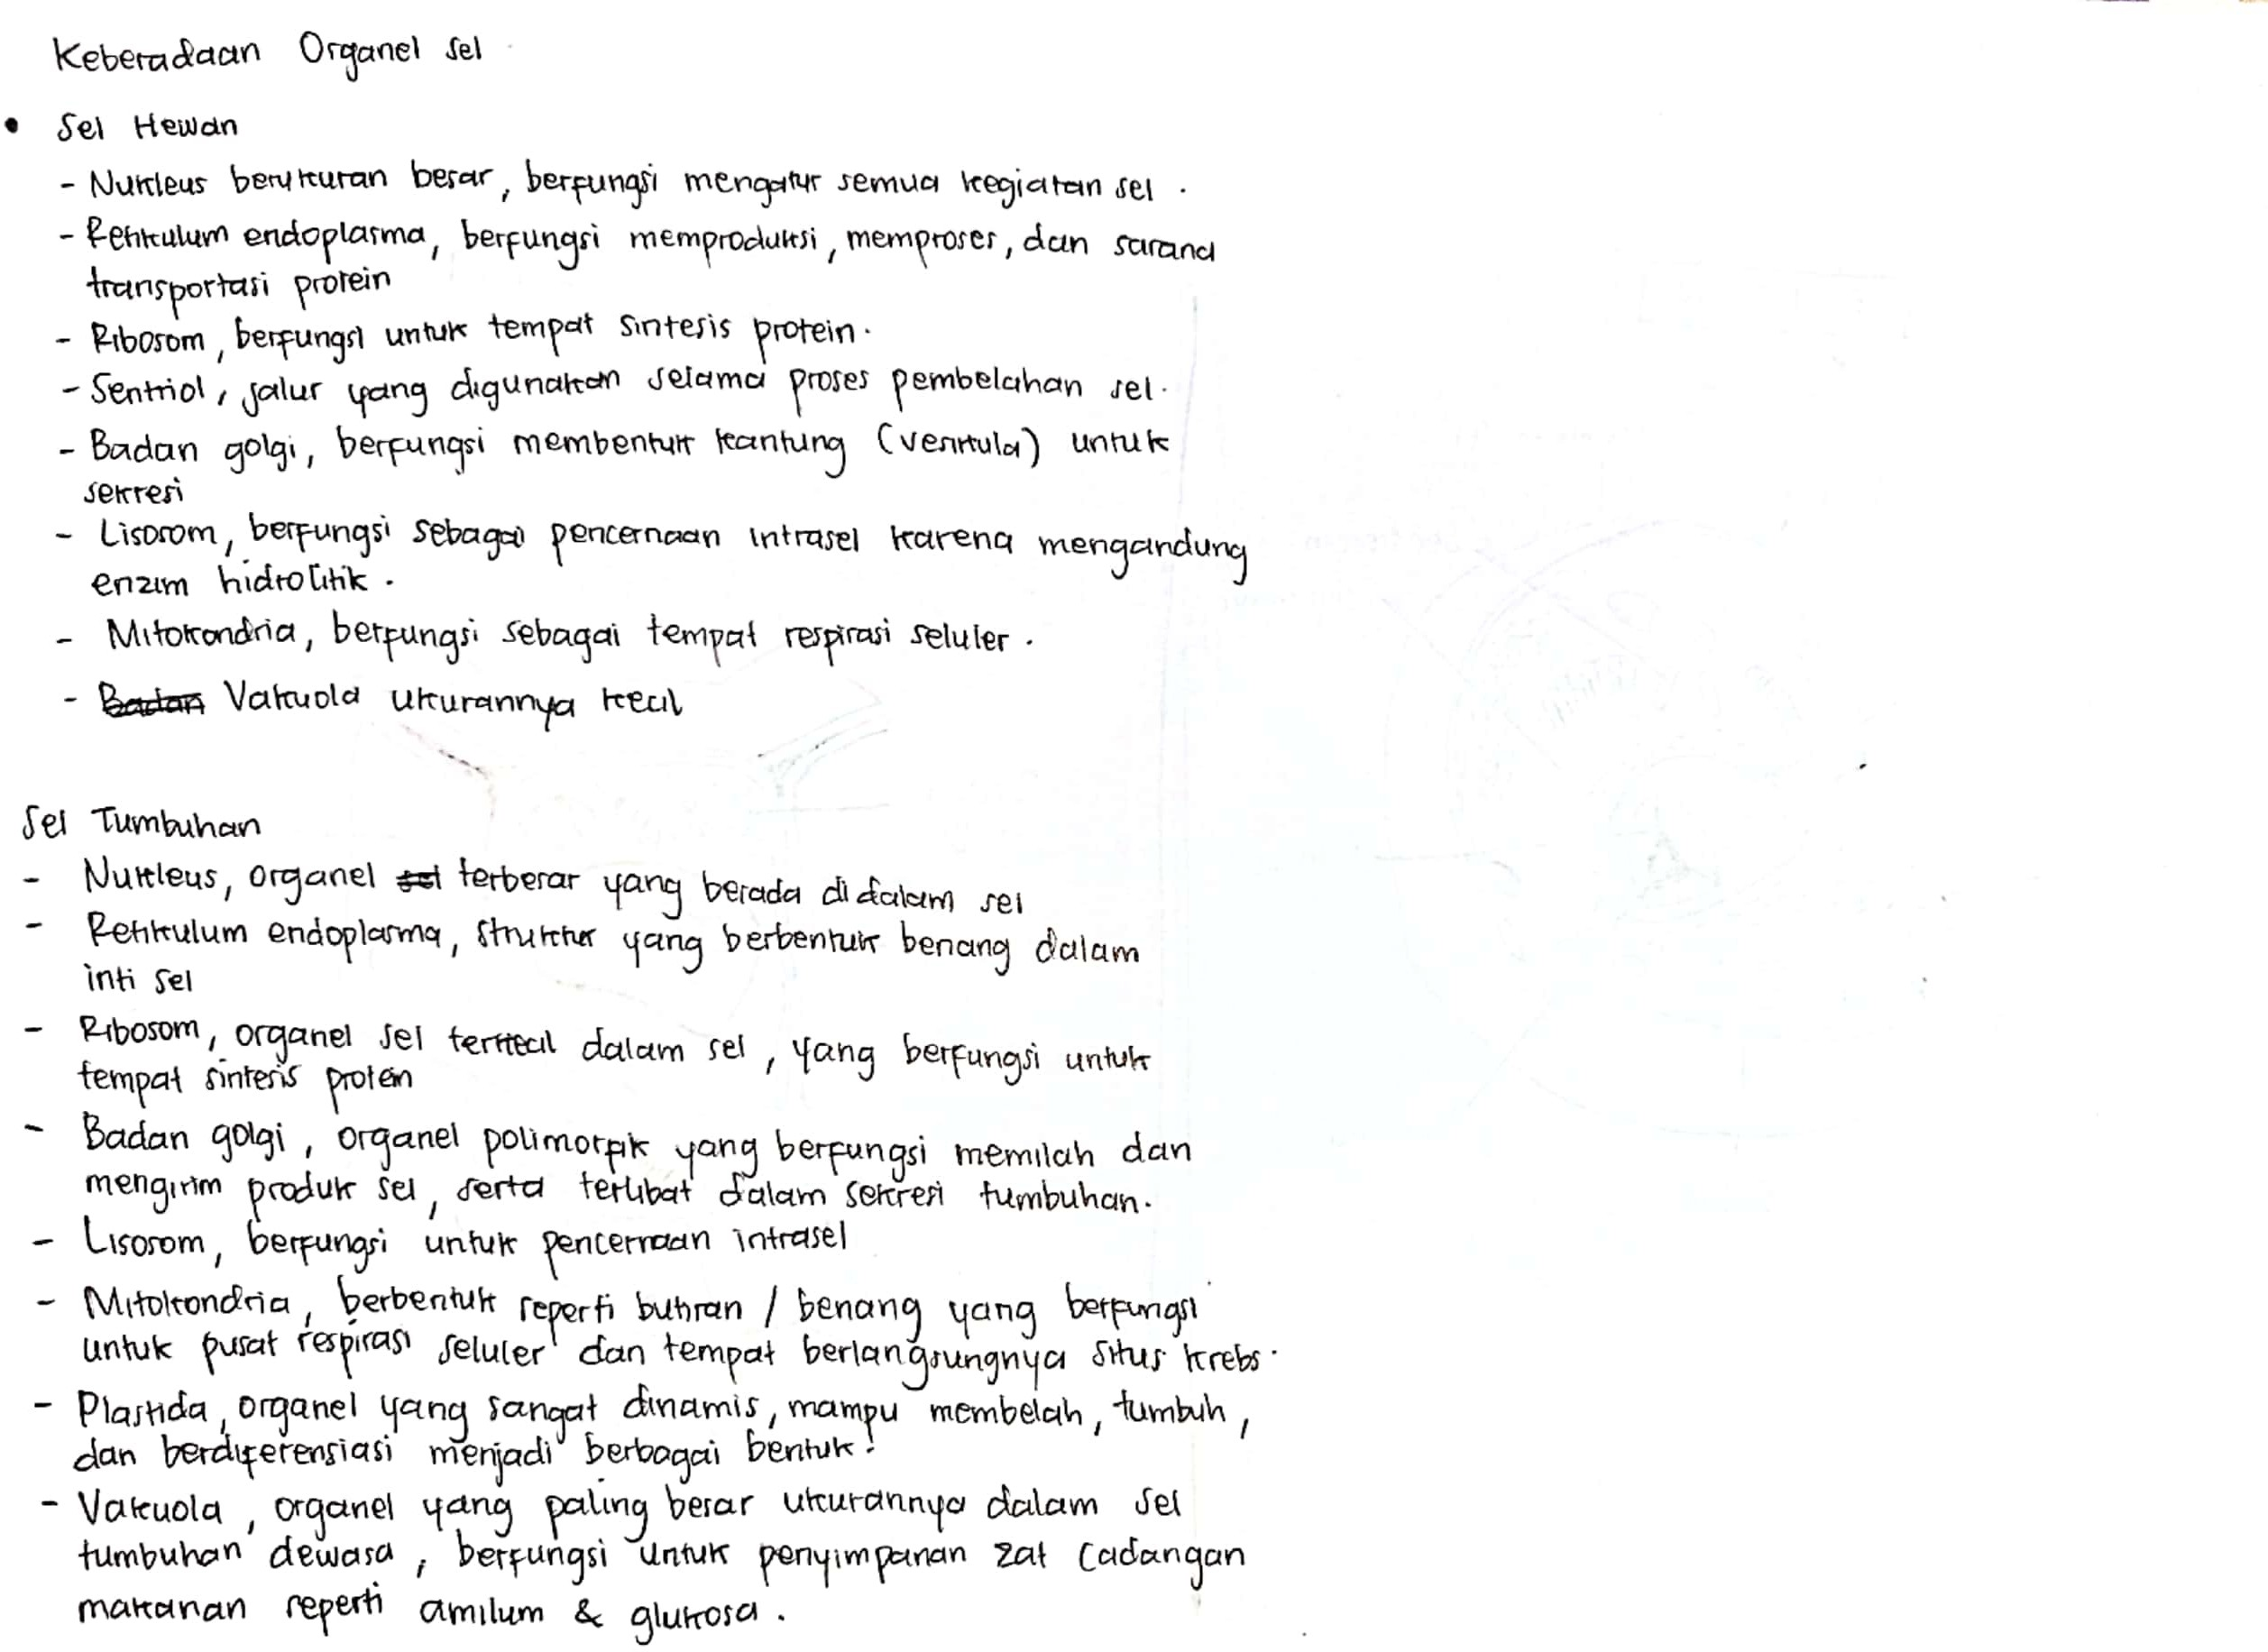 Keberadaan Organel sel
• Sel Hewan
- Nukleus berukuran besar, berfungsi mengatur semua kegiatan sel .
- Retikulum endoplasma, berfungsi memproduksi, memproses, dan sarana
transportasi protein
- Ribosom, berfungsi untuk tempat sintesis protein.
- Sentriol, jalur yang digunakan selama proses pembelahan sel.
- Badan golgi, berfungsi membentuk kantung (vesikula) untuk
sekresi
- Lisosom, berfungsi sebagai pencernaan intrasel karena mengandung
enzim hidrolitik .
- Mitokondria, berfungsi sebagai tempat respirasi seluler .
- Badan Vakuola ukurannya kecil
Sel Tumbuhan
- Nukleus, organel sel terbesar yang berada didalam sel
- Retikulum endoplasma, struktur yang berbentuk benang dalam
inti sel
- Ribosom, organel sel terkecil dalam sel, yang berfungsi untuk
tempat sintesis protein
- Badan golgi, organel polimorfik yang berfungsi memilah dan
mengirim produk sel, serta terlibat dalam sekresi tumbuhan.
- Lisosom, berfungsi untuk pencernaan intrasel
- Mitokondria, berbentuk seperti butiran / benang yang berfungsi
untuk pusat respirasi seluler dan tempat berlangsungnya situs krebs.
- Plastida, organel yang sangat dinamis, mampu membelah, tumbuh,
dan berdiferensiasi menjadi berbagai bentuk.
- Vakuola, organel yang paling besar ukurannya dalam sel
tumbuhan dewasa, berfungsi untuk penyimpanan zat cadangan
makanan seperti amilum & glukosa .